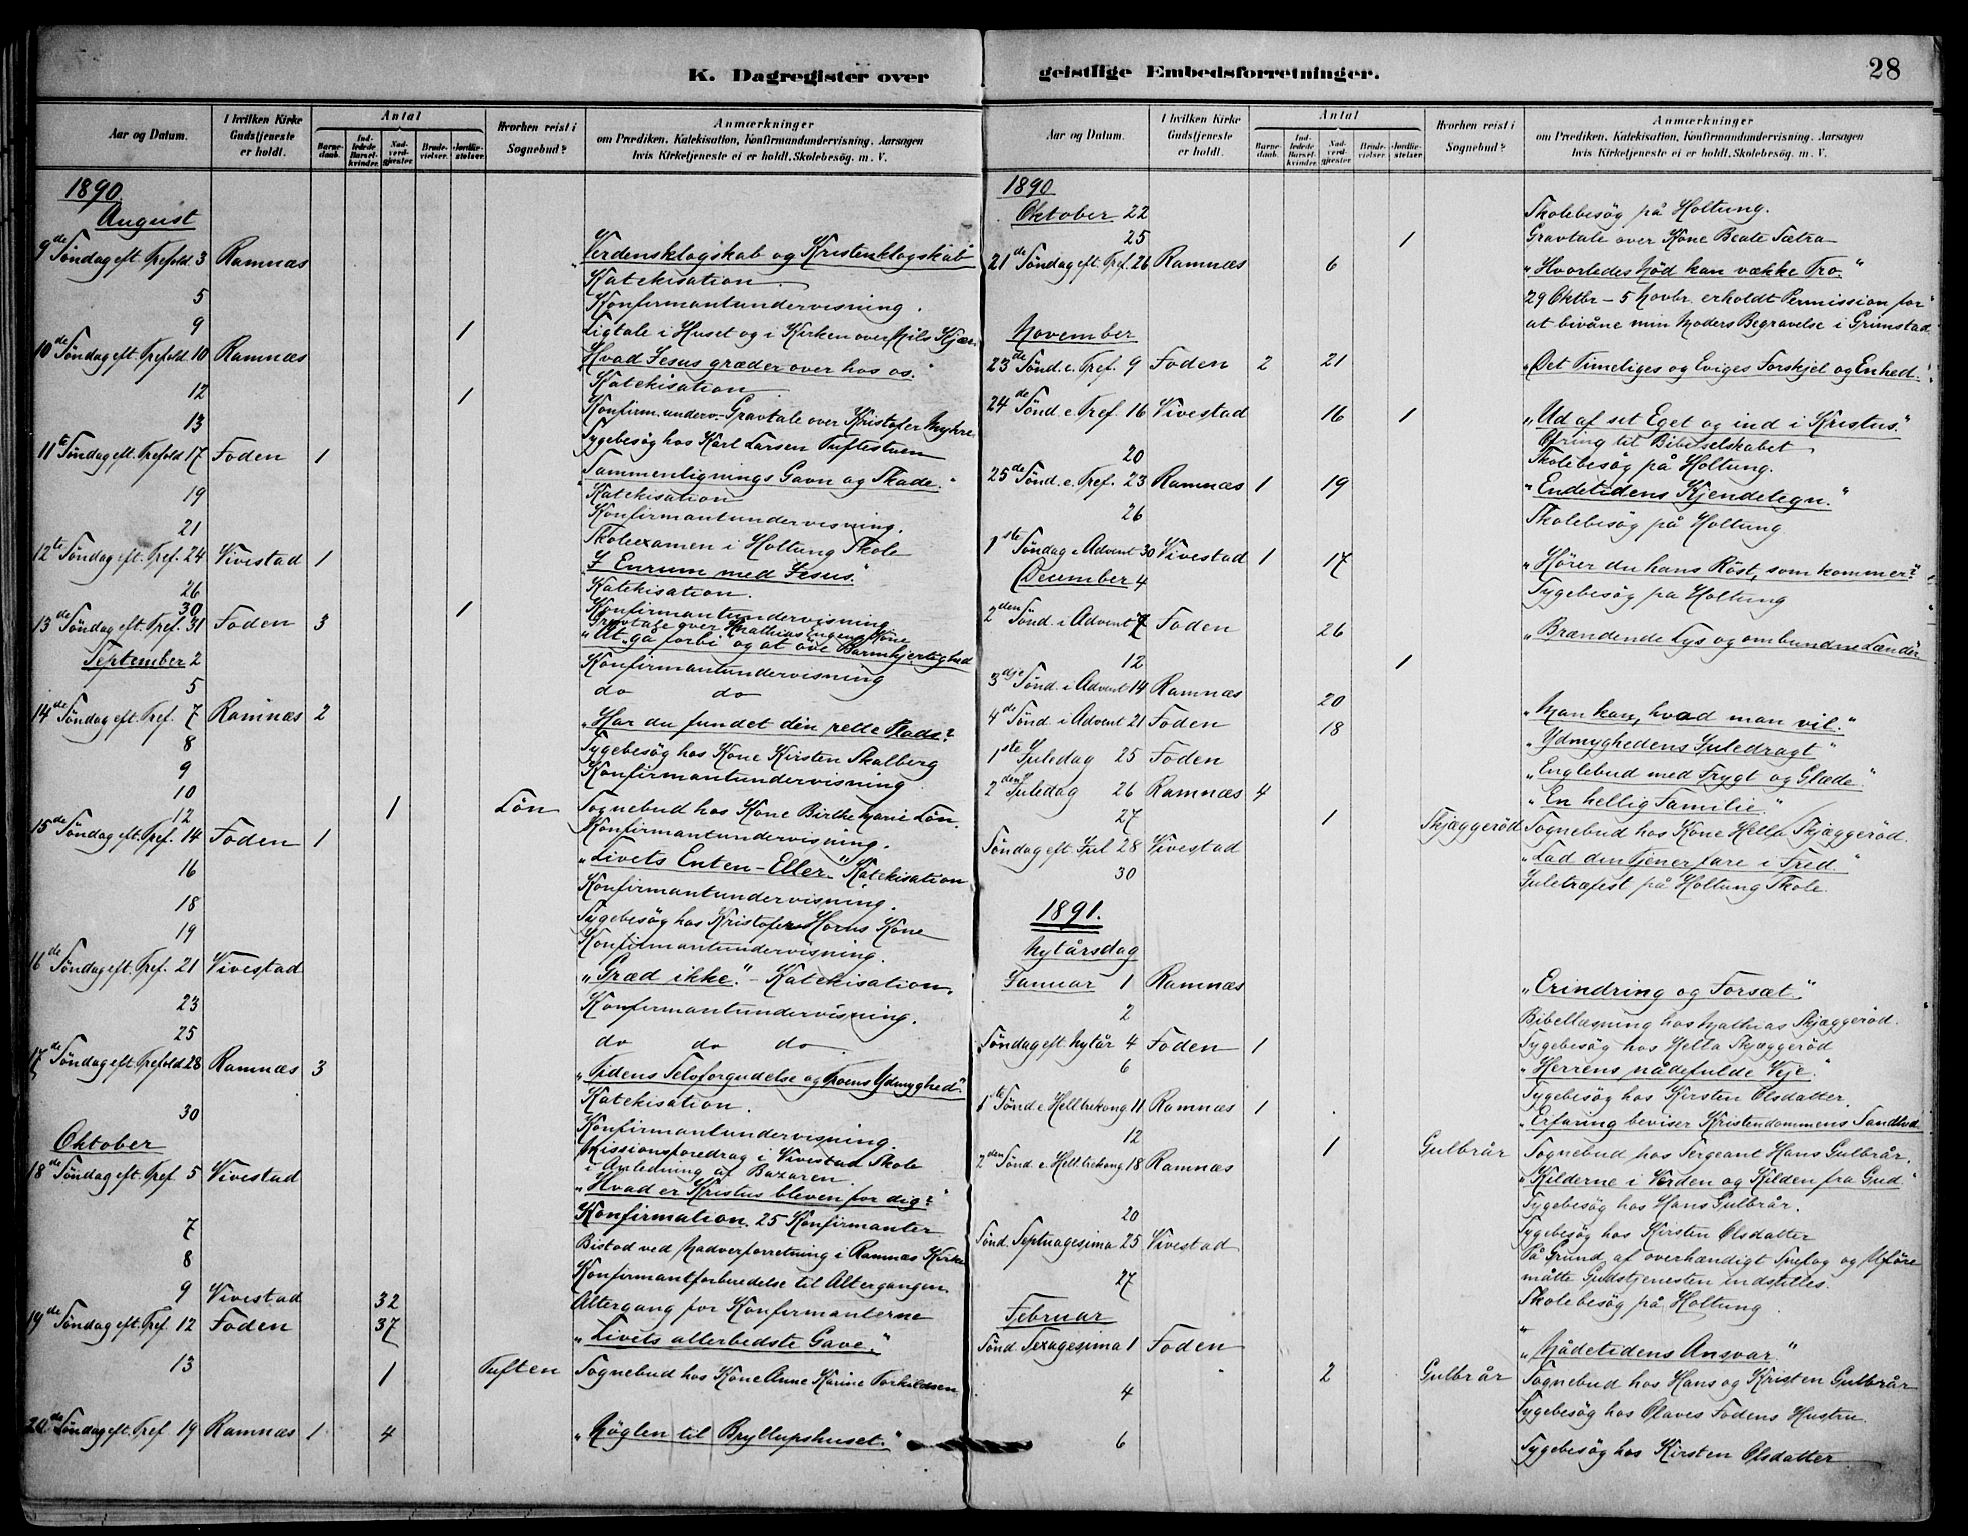 K. Dagregister over
Aar og Datum.
I hvilken Kirke Gudstjeneste er holdt.
Antal
Barne-daab.
Ind-ledede Barsel-kvinder.
Nad-verd-gjæster
Brude-vielser.
Jordfæ-stelser
Hvorhen reist i Sognebud?
Anmærkninger
om Prædiken, Katekisation, Konfirmandundervisning. Aarsagen
hvis Kirketjeneste ei er holdt. Skolebesøg. m. V.
1890
August
9de Søndag eft. Trefold 3 Ramnæs „Verdensklogskab og Kristenklogskab“
Katekisation.
5 Konfirmantundervisning.
9 1 Ligtale i Huset og i Kirken over Nils Kjær.
10de Søndag eft. Trefold 10 Ramnæs „Hvad Jesus græder over hos os.“
Katekisation
12 1 Konfirm.underv.- Gravtale over Kristofer Myhre
13 Sygebesøg hos Karl Larsen Tuftestuen
11te Søndag eft. Trefold 17 Foden 1 „Sammenlignings Gavn og Skade.“
Katekisation
19 Konfirmantundervisning.
21 Skoleexamen i Holtung Skole
12te Søndag eft. Tref. 24 Vivestad 1 „I Enrum med Jesus“
Katekisation.
26 Konfirmantundervisning
30 1 Gravtale over Mathias Eugens Kone
13de Søndag eft. Tref. 31 Foden 3 „At gå forbi og at øve Barmhjertighed
September 2 Konfirmantundervisning
5 do do
14de Søndag eft. Tref. 7 Ramnæs 2 „Har du fundet din rette Plads?
8 Sygebesøg hos Kone Kirsten Skalberg
9 Konfirmantundervisning
10 1 Løn Sognebud hos Kone Birthe Marie Løn.
12 Konfirmantundervisning.
15de Søndag eft. Tref. 14 Foden 1 „Livets Enten-Eller“ Katekisation
16 Konfirmantundervisning.
18 Sygebesøg hos Kristofer Horns Kone
19 Konfirmantundervisning.
16de Søndag eft. Tref. 21 Vivestad „Græd ikke“ - Katekisation.
23 Konfirmantundervisning.
25 do do do
17de Søndag eft. Trefold 28 Ramnæs 3 „Tidens Selvforgudelse og Troens Ydmyghed“
Katekisation.
30 Konfirmantundervisning
Oktober Missionsforedrag i Vivestad Skole
i Anledning af Bazaren.
18de Søndag eft. Tref 5 Vivestad „Hvad er Kristus bleven for dig?“
Konfirmation. 25 Konfirmanter
7 Bistod ved Nadverforretning i Ramnæs Kirke
8 Konfirmantforberedelse til Altergangen
9 Vivestad 32 Altergang for Konfirmanterne
19de Søndag eft. Tref. 12 Foden 37 „Livets allerbedste Gave“
13 1 Tuften Sognebud hos Kone Anne Karine Torkildsen
20de Søndag eft. Tref 19 Ramnæs 1 4 „Nøglen til Bryllupshuset.“
geistlige Embedsforretninger.
28
Aar og Datum.
I hvilken Kirke Gudstjeneste er holdt.
Antal
Barne-daab.
Ind-ledede Barsel-kvinder.
Nad-verd-gjæster
Brude-vielser.
Jordfæ-stelser
Hvorhen reist i Sognebud?
Anmærkninger
om Prædiken, Katekisation, Konfirmandundervisning. Aarsagen
hvis Kirketjeneste ei er holdt. Skolebesøg. m. V.
1890
Oktober 22 Skolebesøg på Holtung.
25 1 Gravtale over Kone Beate Sætra
21de Søndag eft. Tref. 26 Ramnæs 6 „Hvorledes Nød kan vække Tro.“
29 Oktbr - 5 Novbr. erholdt Permission for
at bivåne min Moders Begravelse i Grimstad
November
23de Sønd. e. Tref. 9 Foden 2 21 „Det Timeliges og Eviges Forskjel og Enhed.“
24de Sønd. e. Tref 16 Vivestad 16 1 „Ud af sit Eget og ind i Kristus.“
Ofring til Bibelselskabet
20 Skolebesøg på Holtung.
25de Sønd. e. Tref. 23 Ramnæs 1 19 „Endetidens Kjendetegn.“
26 Skolebesøg på Holtung
1ste Søndag i Advent 30 Vivestad 1 17 „Hører du hans Røst, som kommer?
December 4 Sygebesøg på Holtung
2den Sønd. i Advent 7 Foden 26 „Brændende Lys og ombundne Lænder
12 1
3dje Sønd. i Advent 14 Ramnæs 20 „Man kan, hvad man vil.“
4de Sønd i Advent 21 Foden 18 „Ydmyghedens Juledragt“
1ste Juledag 25 Foden „Englebud med Frygt og Glæde“
2den Juledag 26 Ramnæs 4 „En hellig Familie“
27 1 Skjæggerød Sognebud hos Kone Hella Skjæggerød.
Søndag eft. Jul 28 Vivestad „Lad din Tjener fare i Fred.“
30 Juletræfest på Holtung Skole.
1891.
Nytårsdag
Januar 1 Ramnæs „Erindring og Forsæt.“
2 Bibellæsning hos Mathias Skjæggerød.
Sygebesøg hos Hella Skjæggerød
Søndag eft. Nytår 4 Foden 1 „Herrens nådefulde Veje“
6 Sygebesøg hos Kirsten Olsdatter.
1ste Sønd e Helltrekong 11 Ramnæs 1 „Erfaring beviser Kristendommens Sandhed.
12 1 Gulbrår Sognebud hos Sergeant Hans Gulbrår.
2den Sønd. e. Helltrekong 18 Ramnæs „Kilderne i Verden og Kilden fra Gud.“
Sygebesøg hos Hans Gulbrår.
20 Sygebesøg hos Kirsten Olsdatter
Sønd. Septuagesima 25 Vivestad På Grund af overhændigt Snefog og Uføre
måtte Gudstjenesten indstilles.
27 Skolebesøg på Holtung
Februar
Sønd Sexagesima 1 Foden „Nådetidens Ansvar“
2 Gulbrår Sognebud hos Hans og Kristen Gulbrår
4 Sygebesøg hos Olaves Fodens Hustru
6 Sygebesøg hos Kirsten Olsdatter